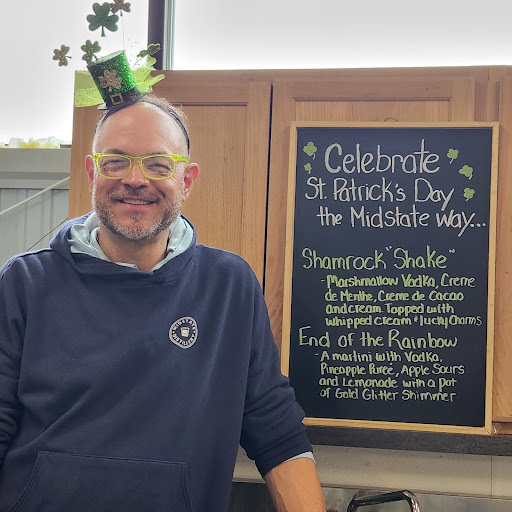 Celebrate
St. Patrick's Day
the Midstate way...
Shamrock "Shake"
- Marshmallow Vodka, Creme
de Menthe, Creme de Cacao
and cream. Topped with
whipped cream & lucky Charms
End of the Rainbow
- A martini with Vodka,
Pineapple Puree, Apple Sours
and Lemonade with a pot
of Gold Glitter Shimmer
MIDSTATE
DISTILLERY